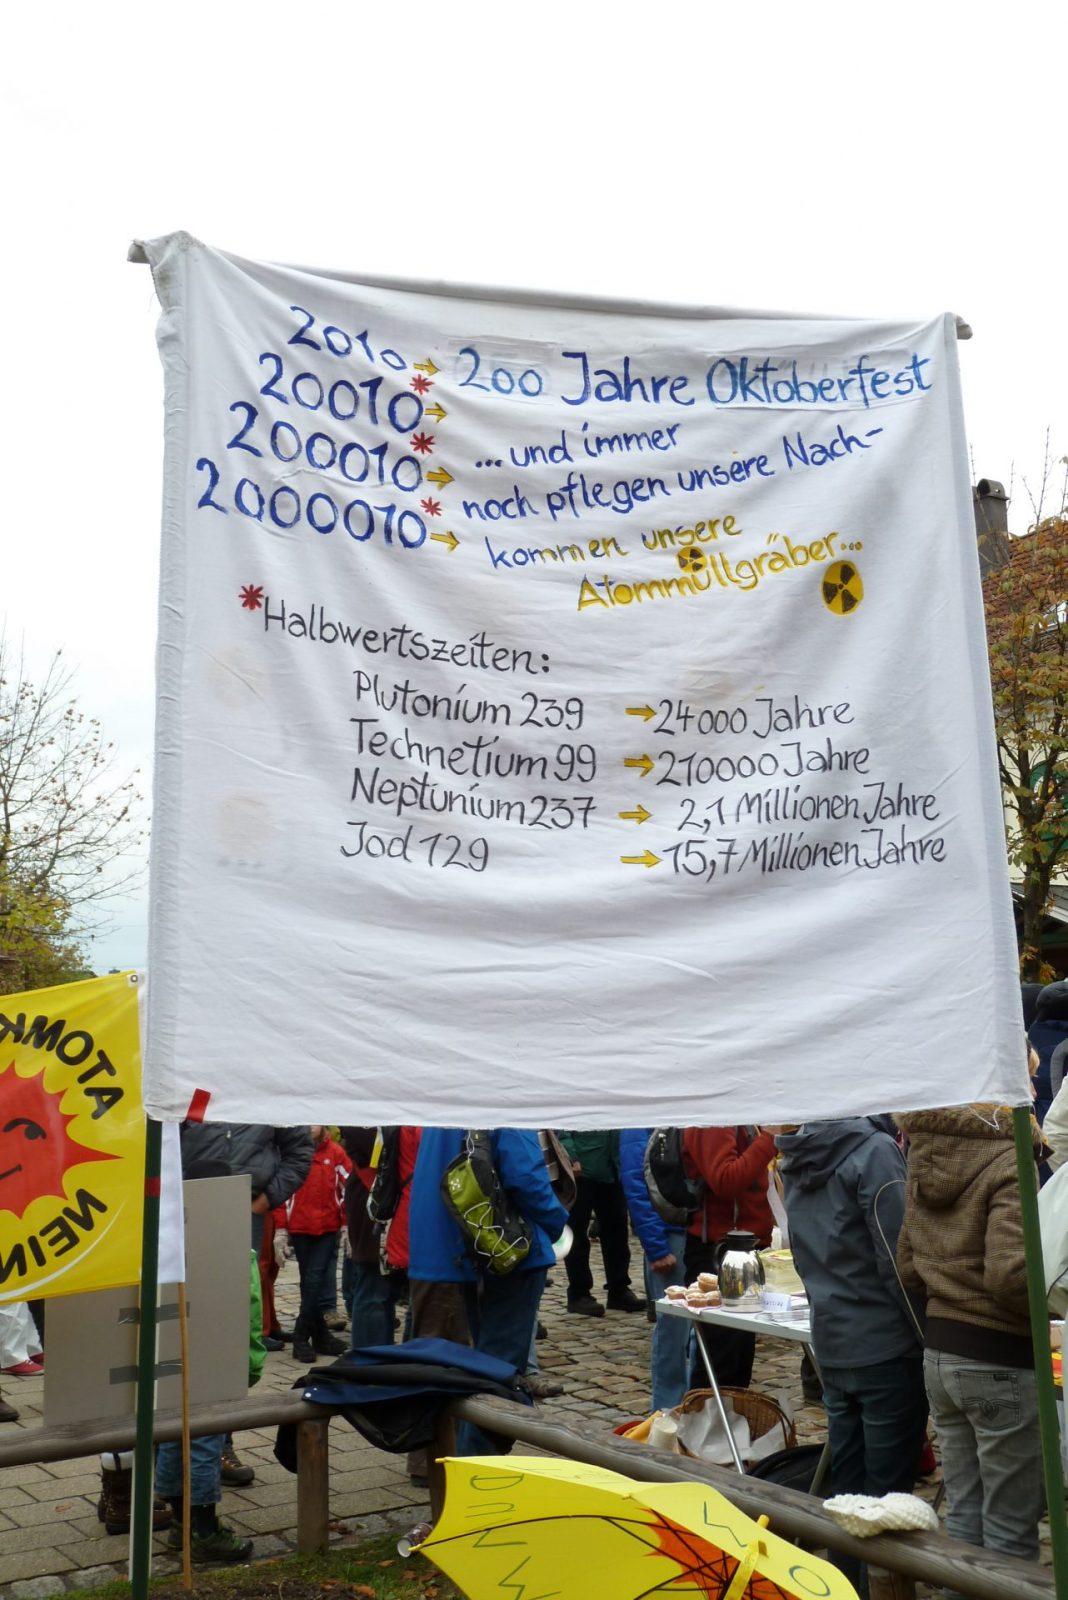 2010 → 200 Jahre Oktoberfest
20010* →
200010* → ...und immer
2000010* → noch pflegen unsere Nach-
kommen unsere
Atommüllgräber...
*Halbwertszeiten:
Plutonium 239 → 24000 Jahre
Technetium 99 → 210000 Jahre
Neptunium 237 → 2,1 Millionen Jahre
Jod 129 → 15,7 Millionen Jahre
ATOMK
NEIN